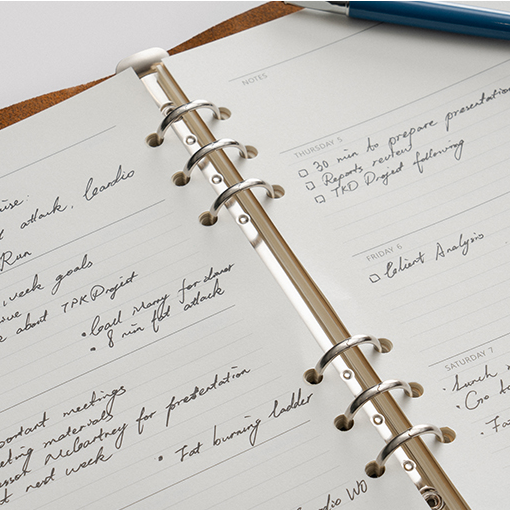 attack, Cardio
Run
week goals
about TPK Project
• Call Mary for dinner
• 8 min fat attack
meetings
materials
McCartney for presentation
next week
• Fat burning ladder
Cardio WO
NOTES
THURSDAY 5
30 min to prepare presentation
Reports review
TKD Project following
FRIDAY 6
Client Analysis
SATURDAY 7
• Lunch
• Go to